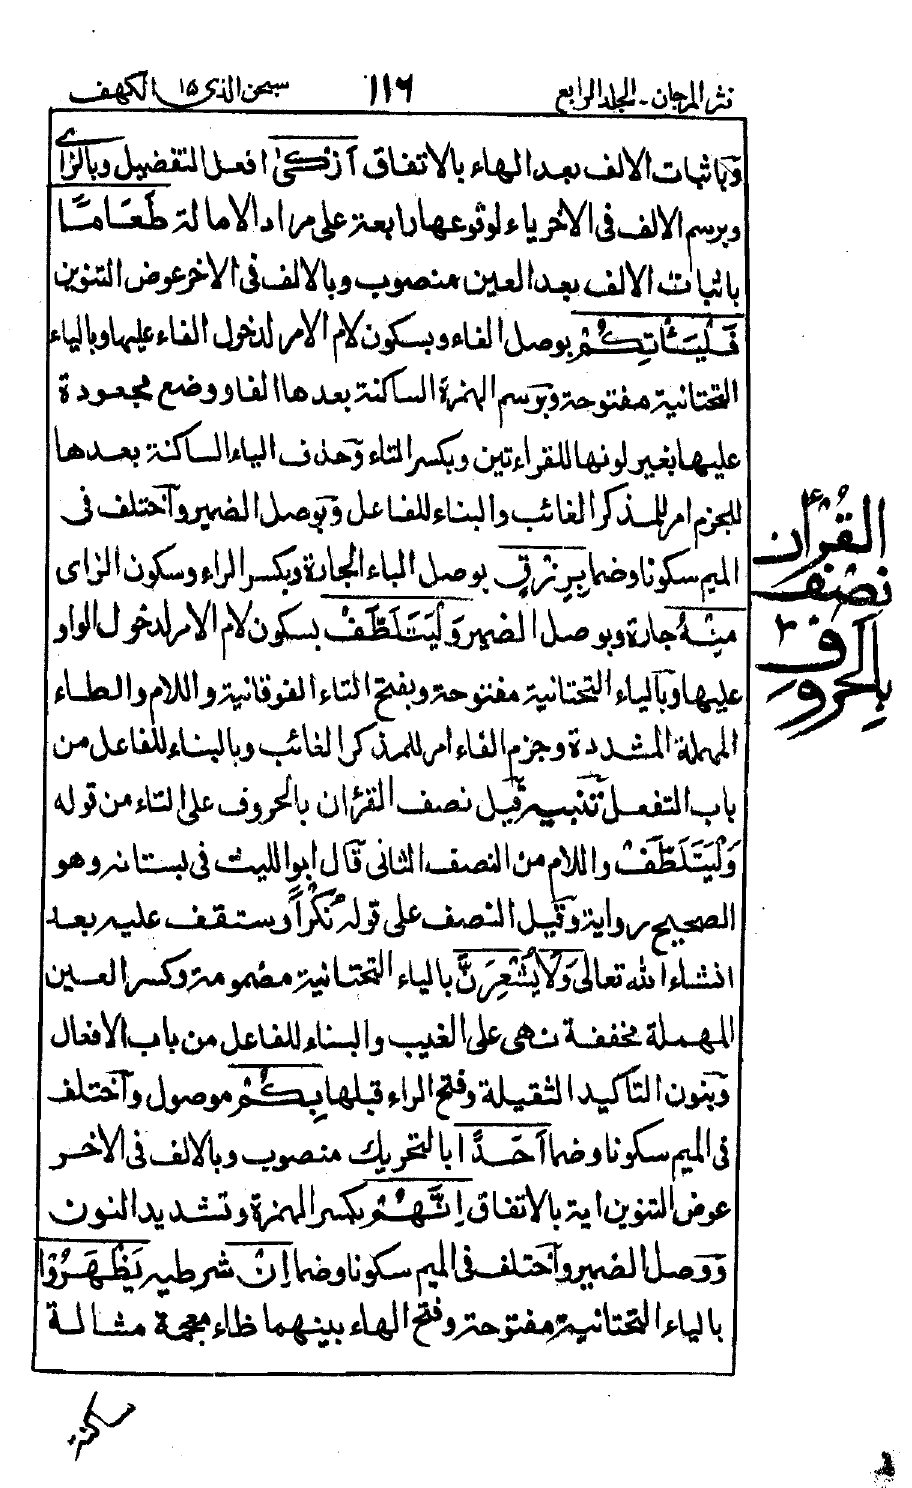 نثر المرجان - الجلد الرابع
١١٦
سبحن الذى ١٥ الكهف
وباثبات الالف بعد الهاء بالاتفاق اَزْكٰى افعل التفضيل وبالزاى
وبرسم الالف فى الاخر ياء لوقوعها رابعة على مراد الامالة طَعَامًا
باثبات الالف بعد العين منصوب وبالالف فى الاخر عوض التنوين
فَلْيَاْتِكُمْ بوصل الفاء وبسكون لام الامر لدخول الفاء عليها وبالياء
التحتانية مفتوحة وبرسم الهمزة الساكنة بعدها الفا ووضع مجعودة
عليها بغير لونها للقراءتين وبكسر التاء وحذف الياء الساكنة بعدها
للجزم امر للمذكر الغائب والبناء للفاعل وبوصل الضمير واختلف فى
الميم سكونا وضما بِرِزْقٍ بوصل الباء الجارة وبكسر الراء وسكون الزاى
مِنْهُ جارة وبوصل الضمير وَلْيَتَلَطَّفْ بسكون لام الامر لدخول الواو
عليها وبالياء التحتانية مفتوحة وبفتح التاء الفوقانية واللام والطاء
المهملة المشددة وجزم الفاء امر للمذكر الغائب وبالبناء للفاعل من
باب التفعل تنبيه قيل نصف القرٰان بالحروف على التاء من قوله
وَلْيَتَلَطَّفْ واللام من النصف الثانى قال ابو الليث فى بستانه وهو
الصحيح رواية وقيل النصف على قوله نُكْرًا وستقف عليه بعد
انشاء الله تعالى وَلَا يُشْعِرَنَّ بالياء التحتانية مضمومة وكسر العين
المهملة مخففة نهى على الغيب والبناء للفاعل من باب الافعال
وبنون التاكيد الثقيلة وفتح الراء قبلها بِكُمْ موصول واختلف
فى الميم سكونا وضما اَحَدًا بالتحريك منصوب وبالالف فى الاخر
عوض التنوين اية بالاتفاق اِنَّهُمْ بكسر الهمزة وتشديد النون
ووصل الضمير واختلف فى الميم سكونا وضما اِنْ شرطيه يَظْهَرُوْا
بالياء التحتانية مفتوحة وفتح الهاء بينهما ظاء معجمة مشالة
ساكنة
القُرْاٰن
نصف
بالحروف